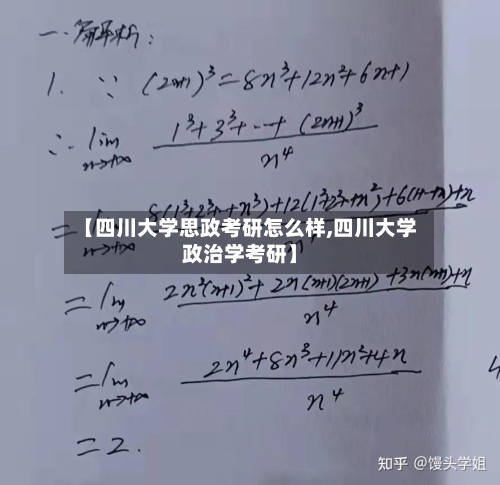 一.解析:
1. ∵ (2n+1)³=8n³+12n²+6n+1
∴ lim n→+∞ 1³+3³+…+(2n+1)³ / n⁴
= 8(1³+2³+…+n³)+12(1²+2²+…+n²)+6(1+…+n)+n
【四川大学思政考研怎么样,四川大学
政治学考研】
=lim n→+∞ 2n²(n+1)²+2n(n+1)(2n+1)+3n(n+1)+n / n⁴
=lim n→+∞ 2n⁴+8n³+11n²+4n / n⁴
=2.
知乎 @馒头学姐